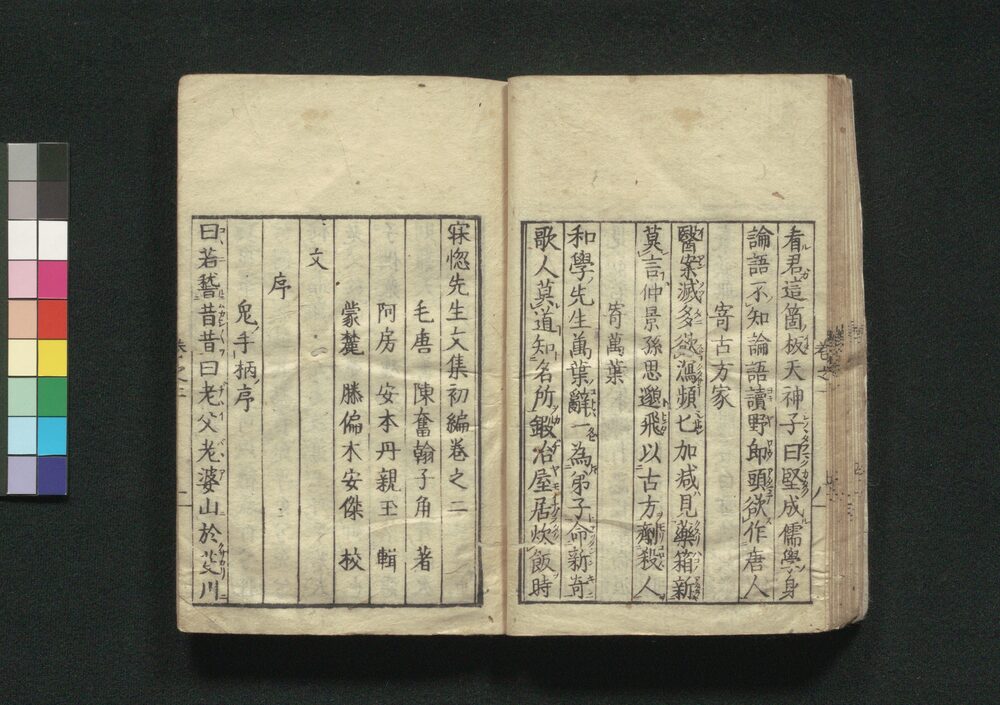 看君這箇板天神子曰堅成儒學身
論語不知論語讀野郎頭欲作唐人
寄古方家
醫案滅多欲瀉頻匕加减見藥箱新
莫言仲景孫思邈飛以古方劑殺人
寄萬葉
和學先生萬葉辭一為弟子命新奇
歌人莫道知名所鍛冶屋居炊飯時
寐惚先生文集初編卷之二
毛唐 陳奮翰子角 著
阿房 安本丹親玉 輯
蒙麓 滕偏木安傑 校
文
序
鬼手柄序
曰若稽昔昔曰老父老婆山於芟川